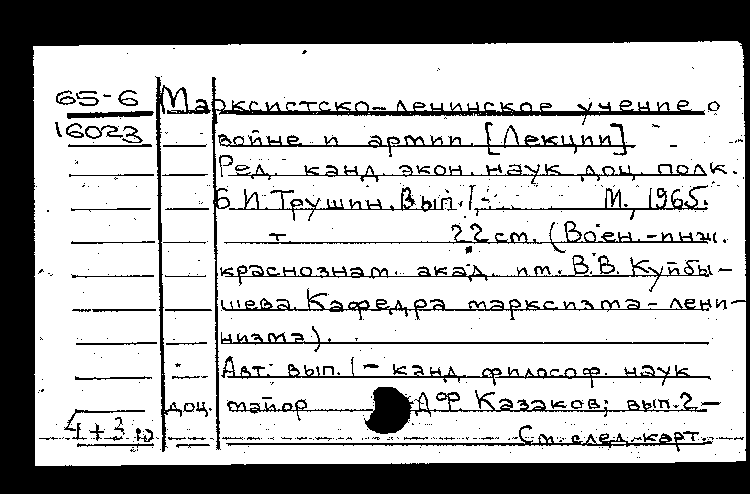 65-6 Марксистско-ленинское учение о
16023 войне и армии. [Лекции].
Ред. канд. экон. наук доц. полк.
Б.И. Трушин. Вып. 1,- М., 1965.
т. 22 см. (Воен.-инж.
краснознам. акад. им. В.В. Куйбы-
шева. Кафедра марксизма-лени-
низма).
Авт. вып. 1 - канд. философ. наук
доц. майор Д.Ф. Казаков; вып. 2-
4+3 См. след. карт.